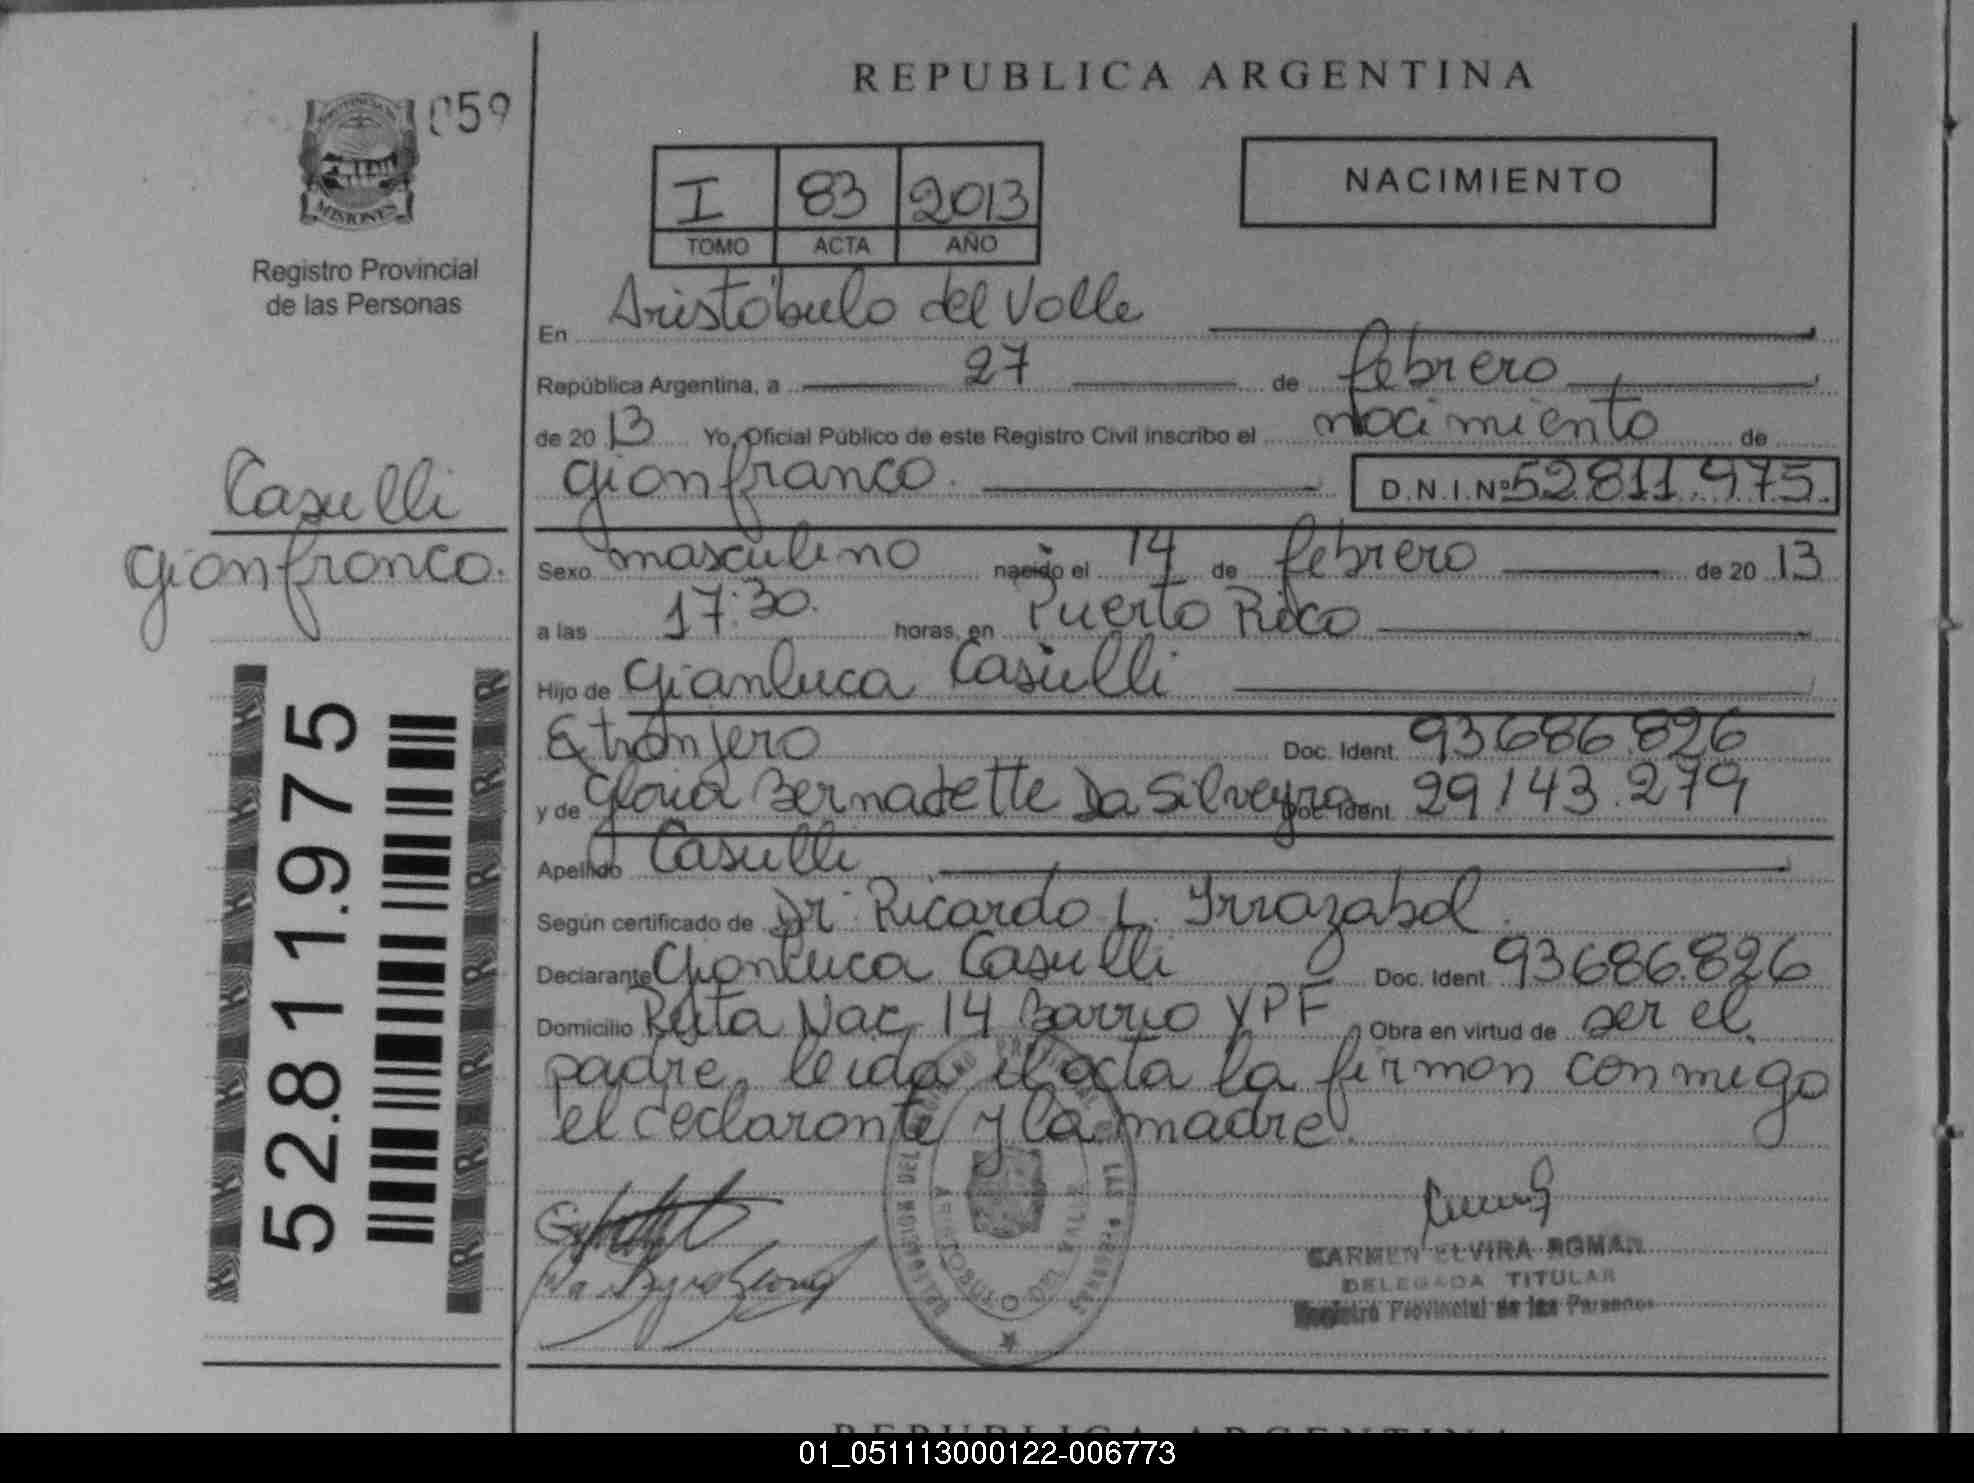 REPUBLICA ARGENTINA
059
MISIONES
Registro Provincial
de las Personas
I 83 2013
TOMO ACTA AÑO
NACIMIENTO
En Aristóbulo del Valle
República Argentina, a 27 de febrero
de 2013 Yo, Oficial Público de este Registro Civil inscribo el nacimiento de
Gianfranco. D.N.I.Nº 52.811.975.
Casulli
Gianfranco.
Sexo masculino nacido el 14 de febrero de 2013
a las 17:30. horas, en Puerto Rico
Hijo de Gianluca Casulli
Extranjero Doc. Ident. 93686.826
y de Gloria Bernadette Da Silveyra Doc. Ident. 29143.279
Apellido Casulli
Según certificado de Dr. Ricardo L. Irrazabal.
Declarante Gianluca Casulli Doc. Ident. 93686.826
Domicilio Ruta Nac. 14 Barrio YPF, Obra en virtud de ser el
padre, leida el acta la firman conmigo
el declarante y la madre.
52.811.975
CARMEN ELVIRA ROMAN
DELEGADA TITULAR
Registro Provincial de las Personas
REPUBLICA ARGENTINA
01_051113000122-006773